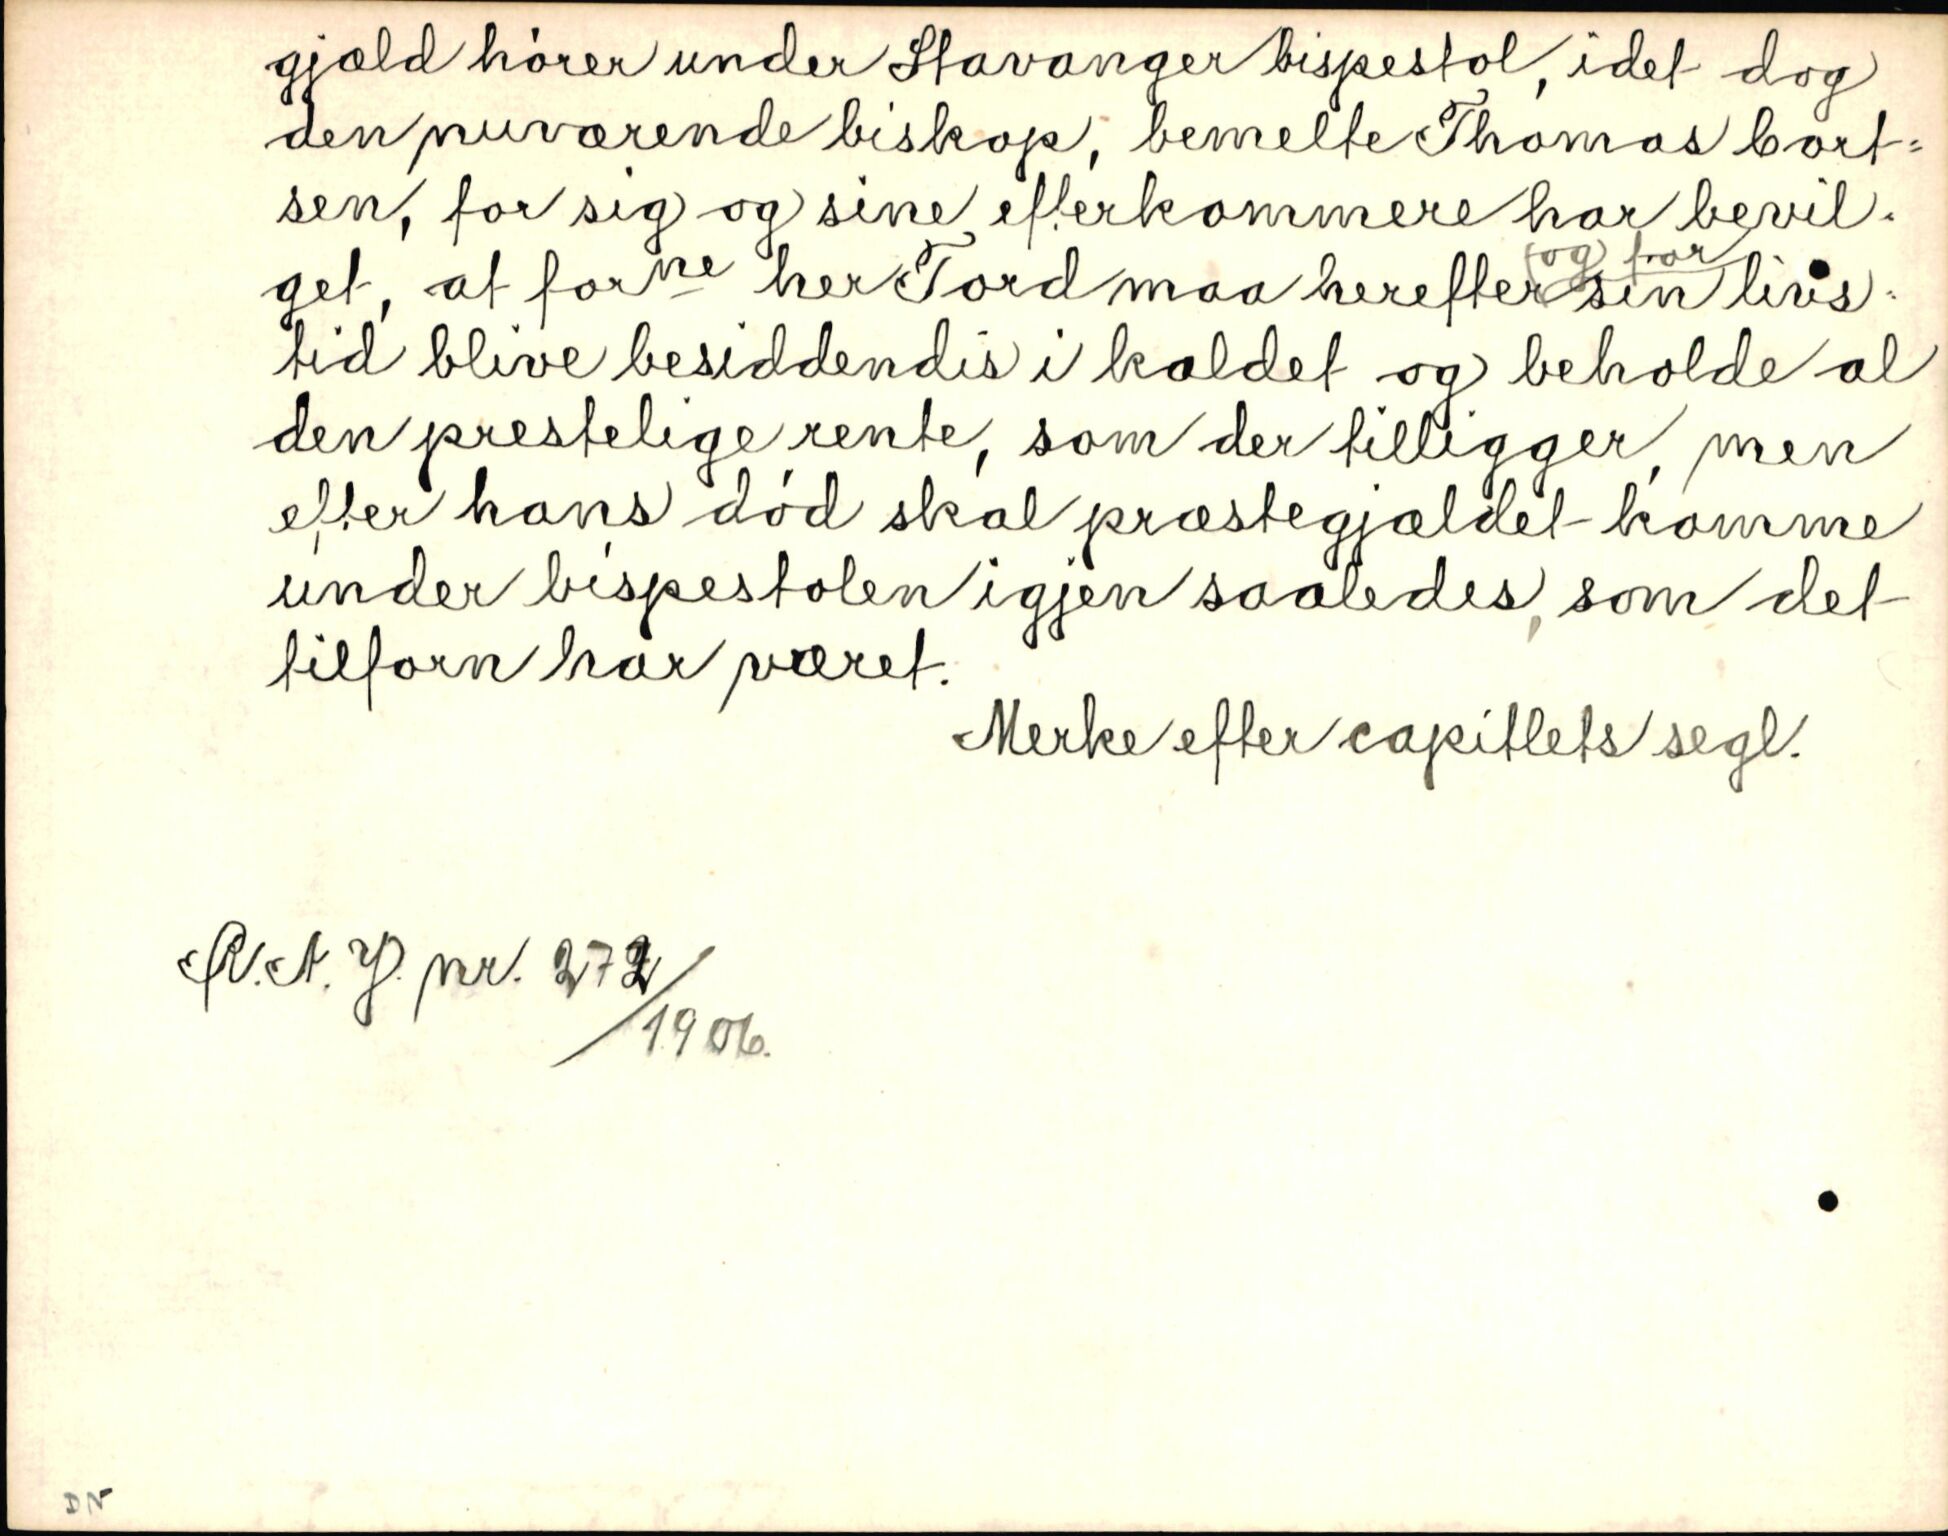 gjæld hörer under Stavanger bispestol, idet dog
den nuværende biskop, bemelte Thomas Cort-
sen, for sig og sine efterkommere har bevil-
get, at forne her Tord maa herefter (og for) sin livs-
tid blive besiddendis i kaldet og beholde al
den prestelige rente, som der tilligger, men
efter hans död skal præstegjældet komme
under bispestolen igjen saaledes, som det
tilforn har været.
Merke efter capitlets segl.
R.A. J. nr. 272/1906.